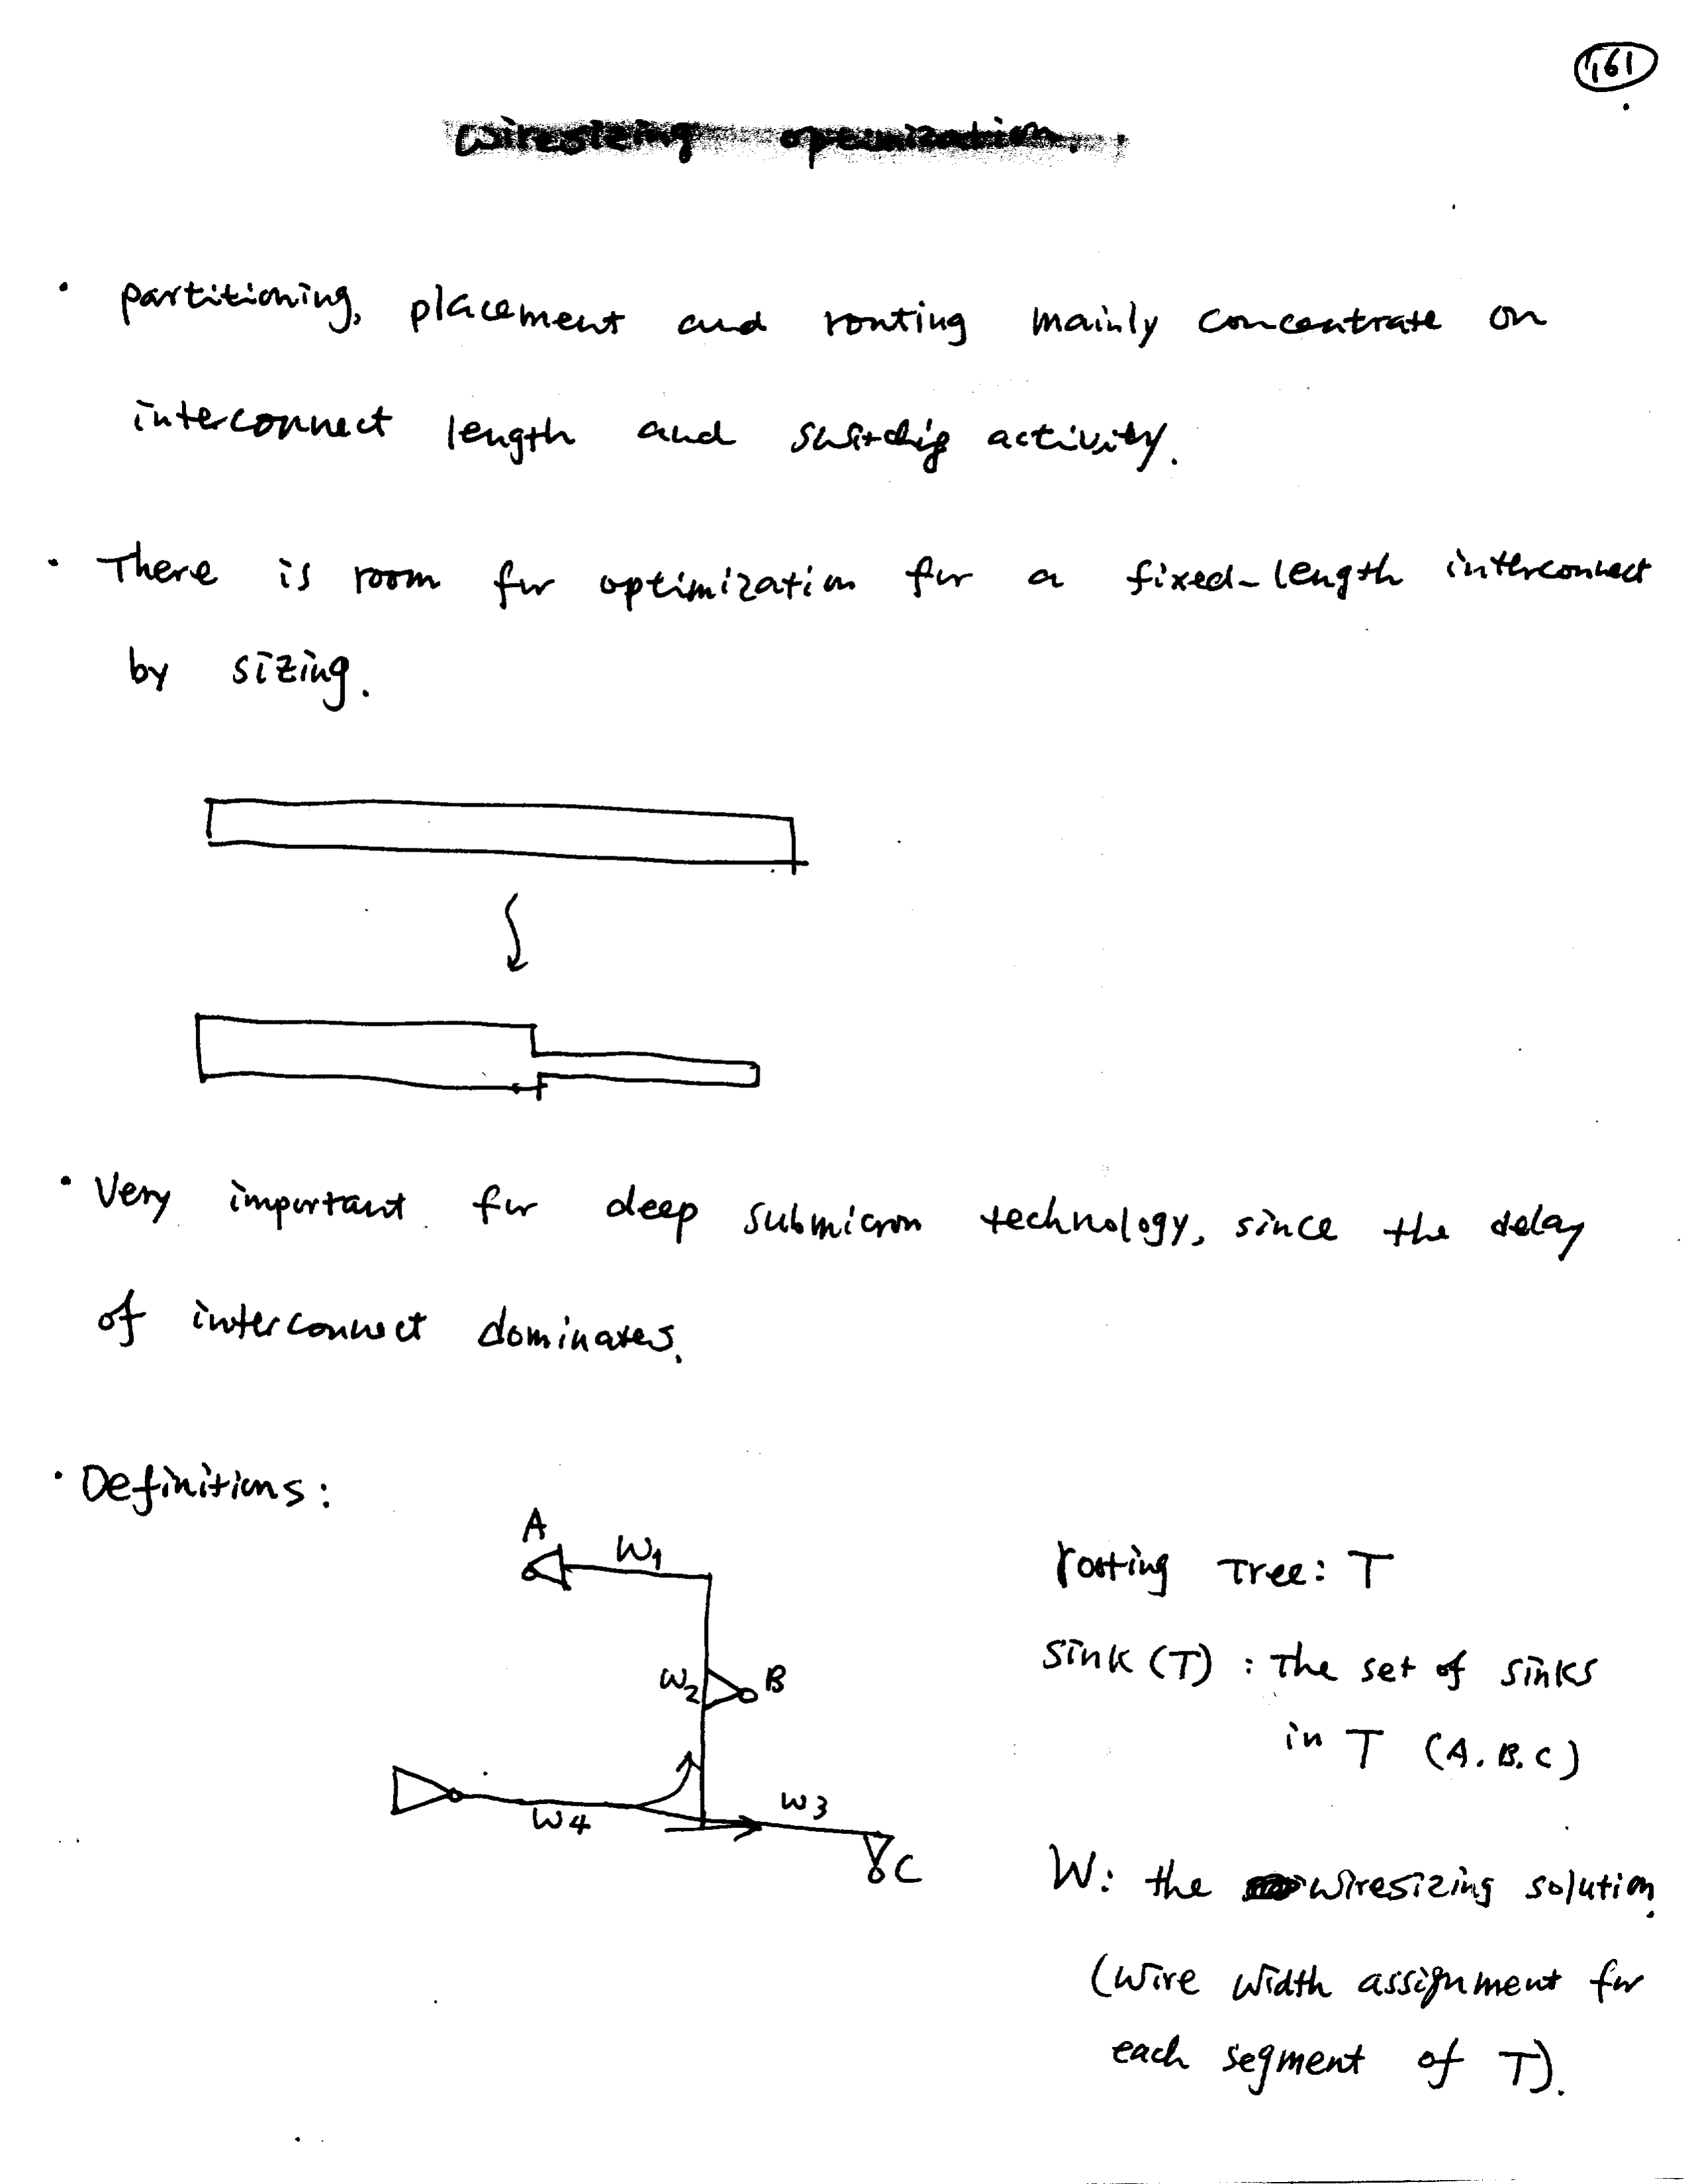 161
Wiresizing optimization.
· partitioning, placement and routing mainly concentrate on
interconnect length and switching activity.
· There is room for optimization for a fixed-length interconnect
by sizing.
· Very important for deep submicron technology, since the delay
of interconnect dominates.
· Definitions:
A
W1
W2
B
W4
W3
C
routing Tree: T
Sink (T) : The set of sinks
in T (A.B.C)
W: the wiresizing solution.
(wire width assignment for
each segment of T).